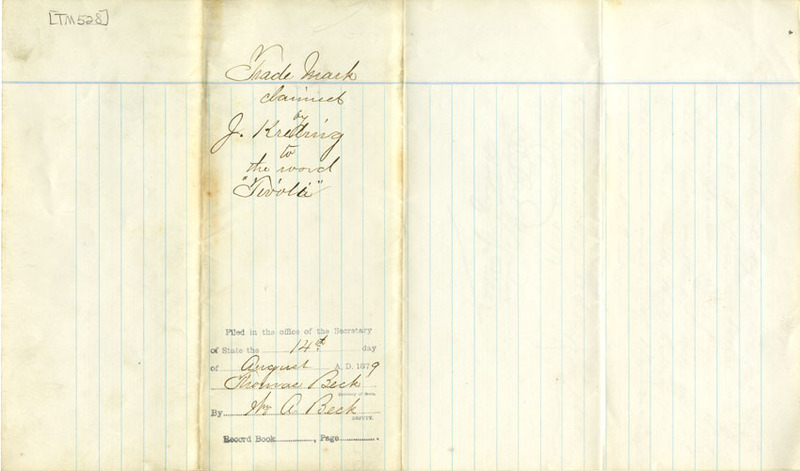 [TM528]
Trade Mark
claimed
by
J. Kreling
to
the word
"Tivoli"
Filed in the office of the Secretary
of State the 14th day
of August A.D. 1879
Thomas Beck
Secretary of State.
By Wm A. Beck
DEPUTY.
Record Book, Page.